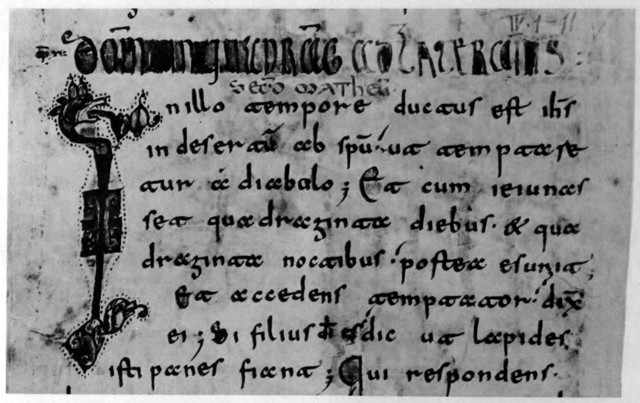 IV. 1-11
AD LATERANIS:
SECD MATHEU
In illo tempore ductus est ihs
in desertū ab spū. ut temptare
tur a diabolo; Et cum ieiunas
set quadraginta diebus. & qua
draginta noctibus. postea esuriit;
Et accedens temptator. dix̄
ei; Si filius dī es dic ut lapides
isti panes fiant; Qui respondens.